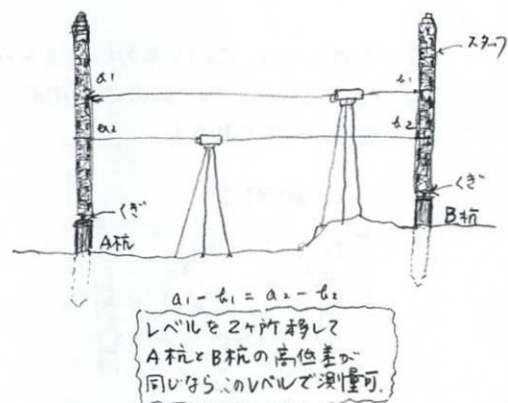 スタッフ
a1
b1
a2
b2
くぎ
くぎ
A杭
B杭
a1 - b1 = a2 - b2
レベルを2ヶ所移して
A杭とB杭の高低差が
同じなら、このレベルで測量可.